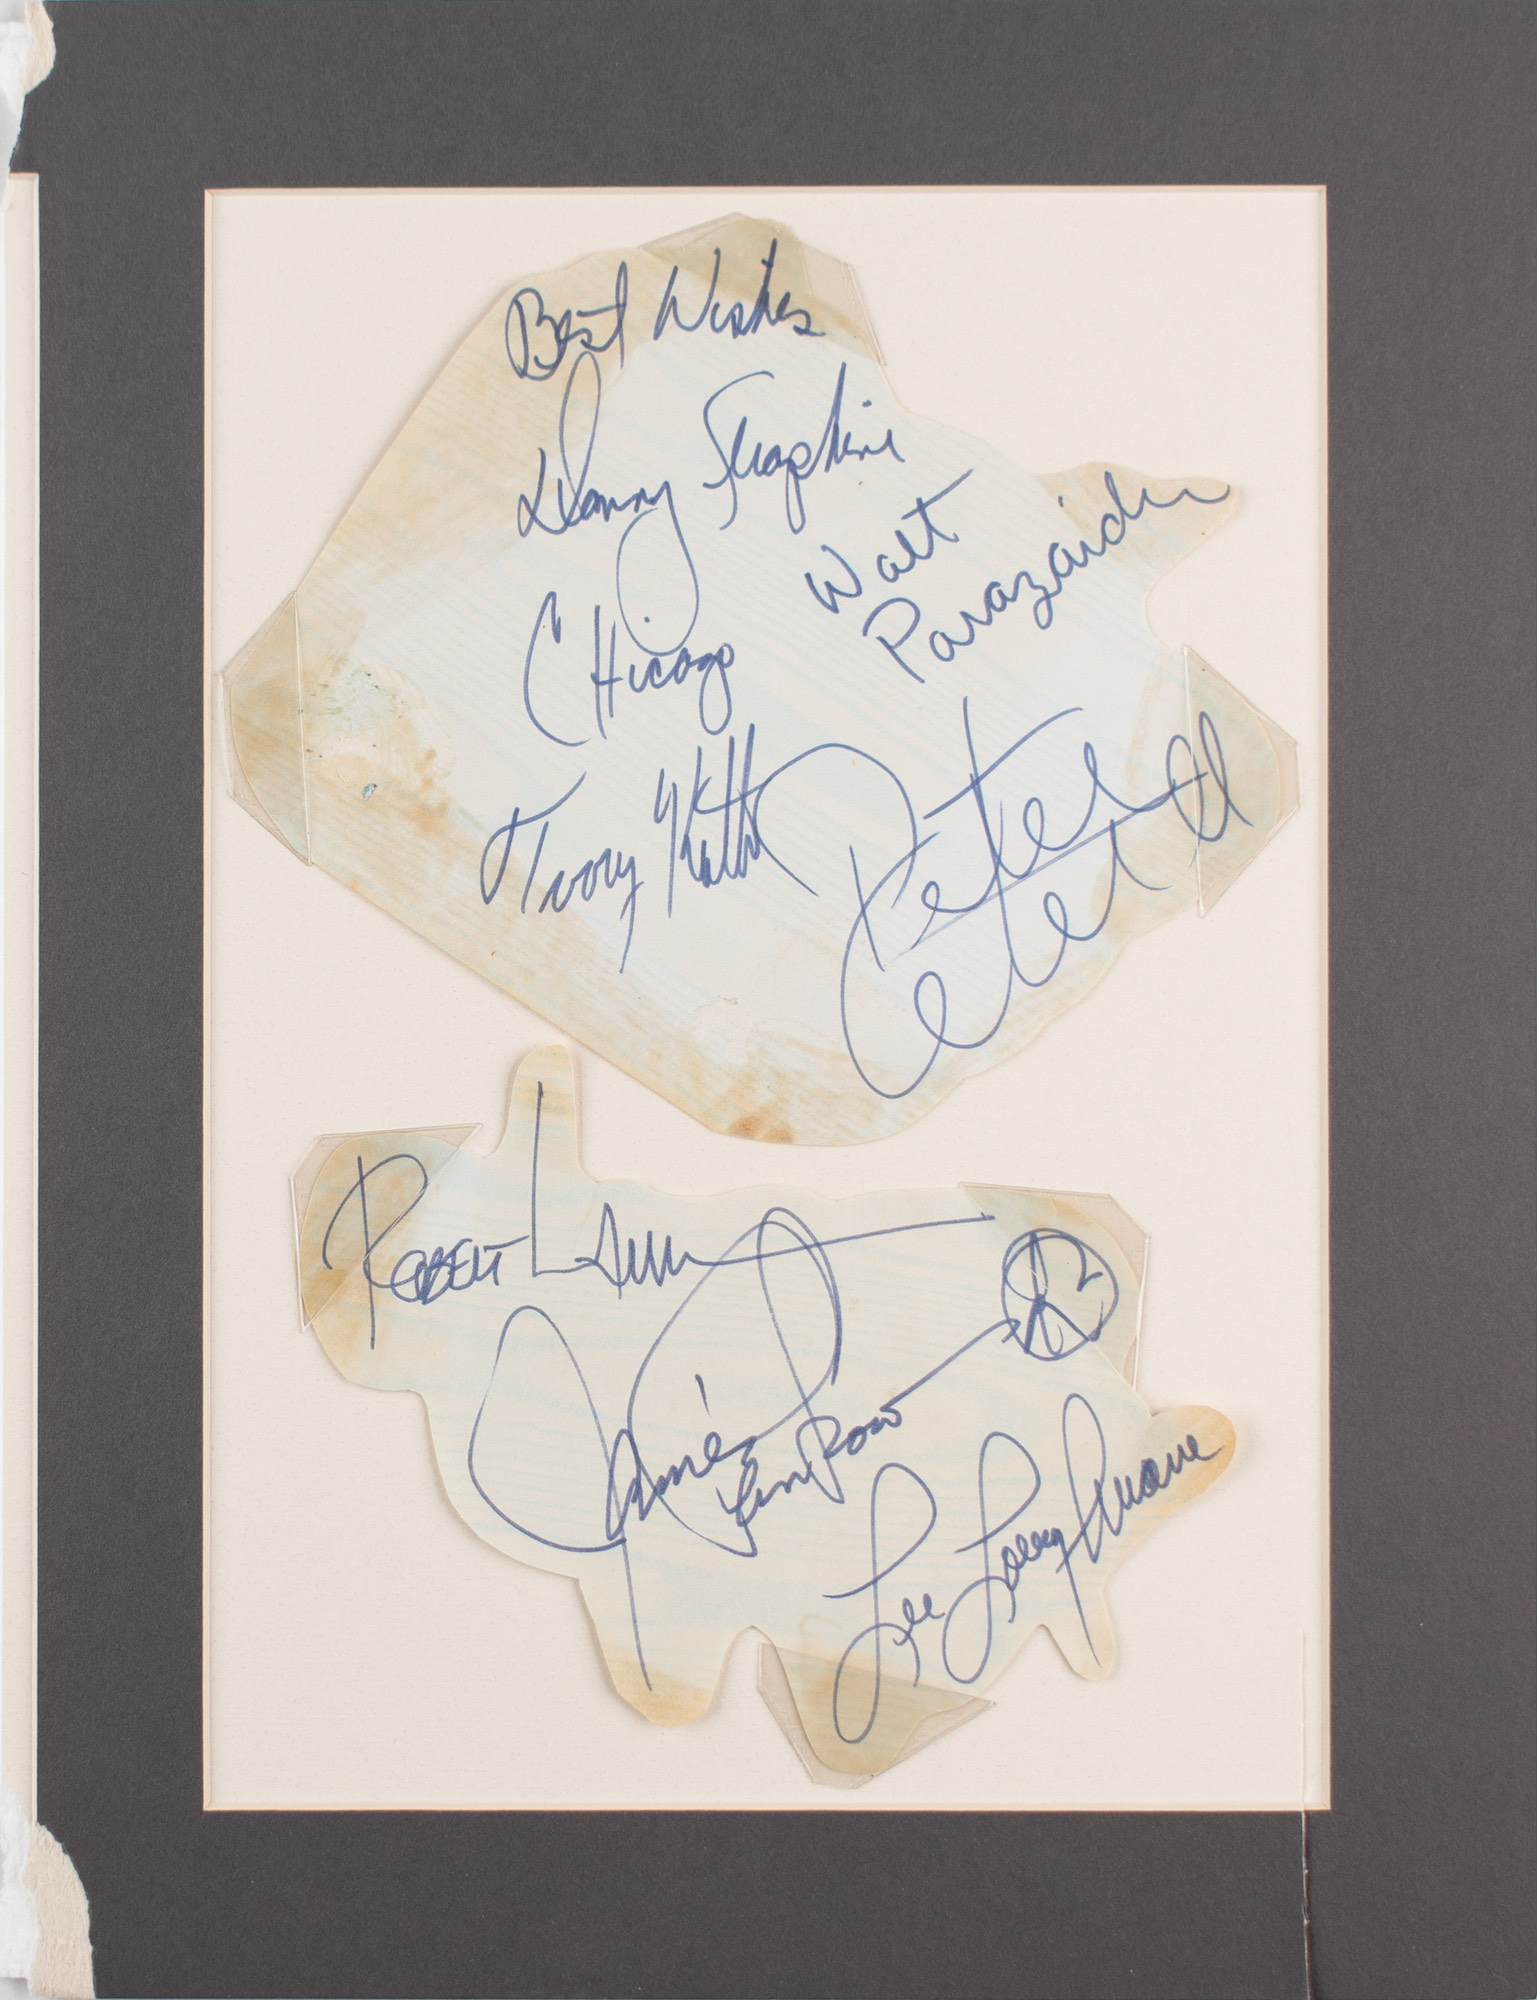 Best Wishes
Danny Seraphine
Walt
Parazaider
CHicago
Terry Kath
Peter Cetera
ROBERT Lamm
James
Pankow
Lee Loughnane